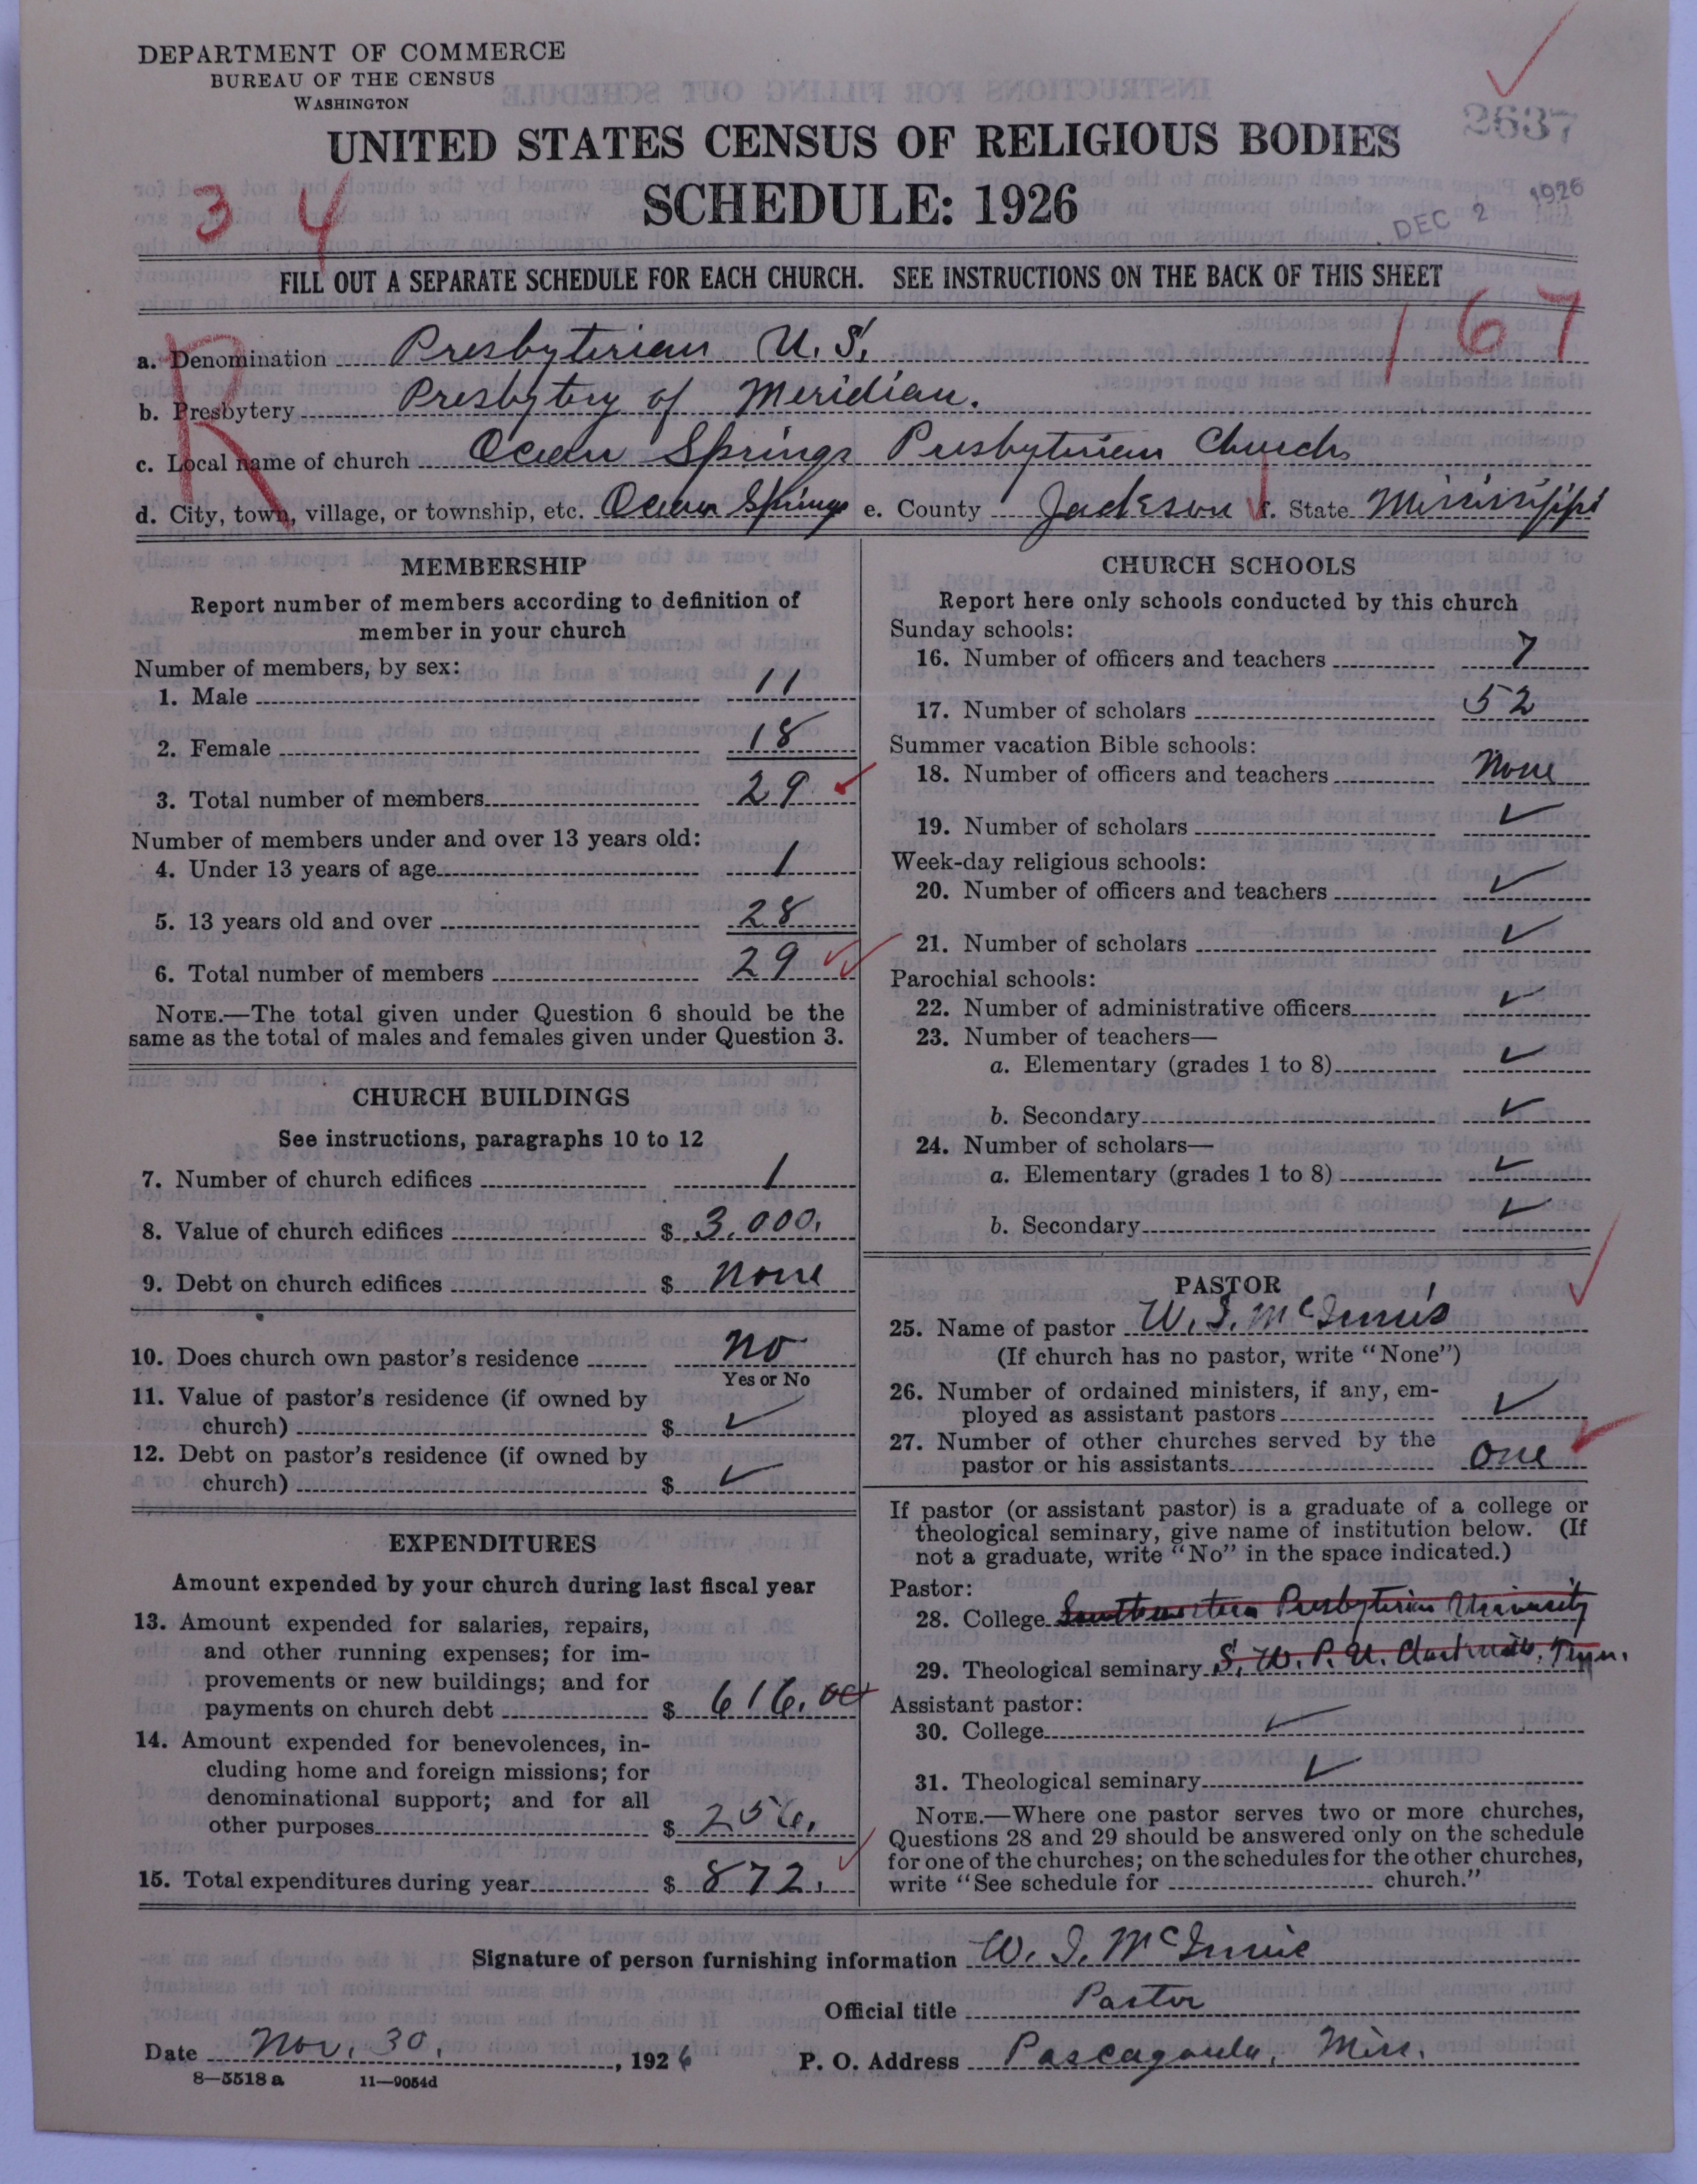 DEPARTMENT OF COMMERCE
BUREAU OF THE CENSUS
WASHINGTON
2637
UNITED STATES CENSUS OF RELIGIOUS BODIES
SCHEDULE: 1926
3 4
DEC 2 1926
FILL OUT A SEPARATE SCHEDULE FOR EACH CHURCH. SEE INSTRUCTIONS ON THE BACK OF THIS SHEET
167
R
a. Denomination Presbyterian U.S.
b. Presbytery Presbytery of Meridian.
c. Local name of church Ocean Springs Presbyterian Church
d. City, town, village, or township, etc. Ocean Springs e. County Jackson f. State Mississippi
MEMBERSHIP
Report number of members according to definition of
member in your church
Number of members, by sex:
1. Male 11
2. Female 18
3. Total number of members 29
Number of members under and over 13 years old:
4. Under 13 years of age 1
5. 13 years old and over 28
6. Total number of members 29
NOTE.—The total given under Question 6 should be the
same as the total of males and females given under Question 3.
CHURCH BUILDINGS
See instructions, paragraphs 10 to 12
7. Number of church edifices 1
8. Value of church edifices $ 3,000.
9. Debt on church edifices $ None
10. Does church own pastor's residence No
Yes or No
11. Value of pastor's residence (if owned by
church) $ ✓
12. Debt on pastor's residence (if owned by
church) $ ✓
EXPENDITURES
Amount expended by your church during last fiscal year
13. Amount expended for salaries, repairs,
and other running expenses; for im-
provements or new buildings; and for
payments on church debt $ 616.00
14. Amount expended for benevolences, in-
cluding home and foreign missions; for
denominational support; and for all
other purposes $ 256.
15. Total expenditures during year $ 872.
CHURCH SCHOOLS
Report here only schools conducted by this church
Sunday schools:
16. Number of officers and teachers 7
17. Number of scholars 52
Summer vacation Bible schools:
18. Number of officers and teachers None
19. Number of scholars ✓
Week-day religious schools:
20. Number of officers and teachers ✓
21. Number of scholars ✓
Parochial schools:
22. Number of administrative officers ✓
23. Number of teachers—
a. Elementary (grades 1 to 8) ✓
b. Secondary ✓
24. Number of scholars—
a. Elementary (grades 1 to 8) ✓
b. Secondary ✓
PASTOR
25. Name of pastor W. I. McInnis
(If church has no pastor, write "None")
26. Number of ordained ministers, if any, em-
ployed as assistant pastors ✓
27. Number of other churches served by the
pastor or his assistants One
If pastor (or assistant pastor) is a graduate of a college or
theological seminary, give name of institution below. (If
not a graduate, write "No" in the space indicated.)
Pastor:
28. College Southwestern Presbyterian University
29. Theological seminary S. W. P. U. Clarksville, Tenn.
Assistant pastor:
30. College ✓
31. Theological seminary ✓
NOTE.—Where one pastor serves two or more churches,
Questions 28 and 29 should be answered only on the schedule
for one of the churches; on the schedules for the other churches,
write "See schedule for church."
Signature of person furnishing information W. I. McInnis
Official title Pastor
Date Nov. 30, 1926 P. O. Address Pascagoula, Miss.
8—5518 a 11—9054d